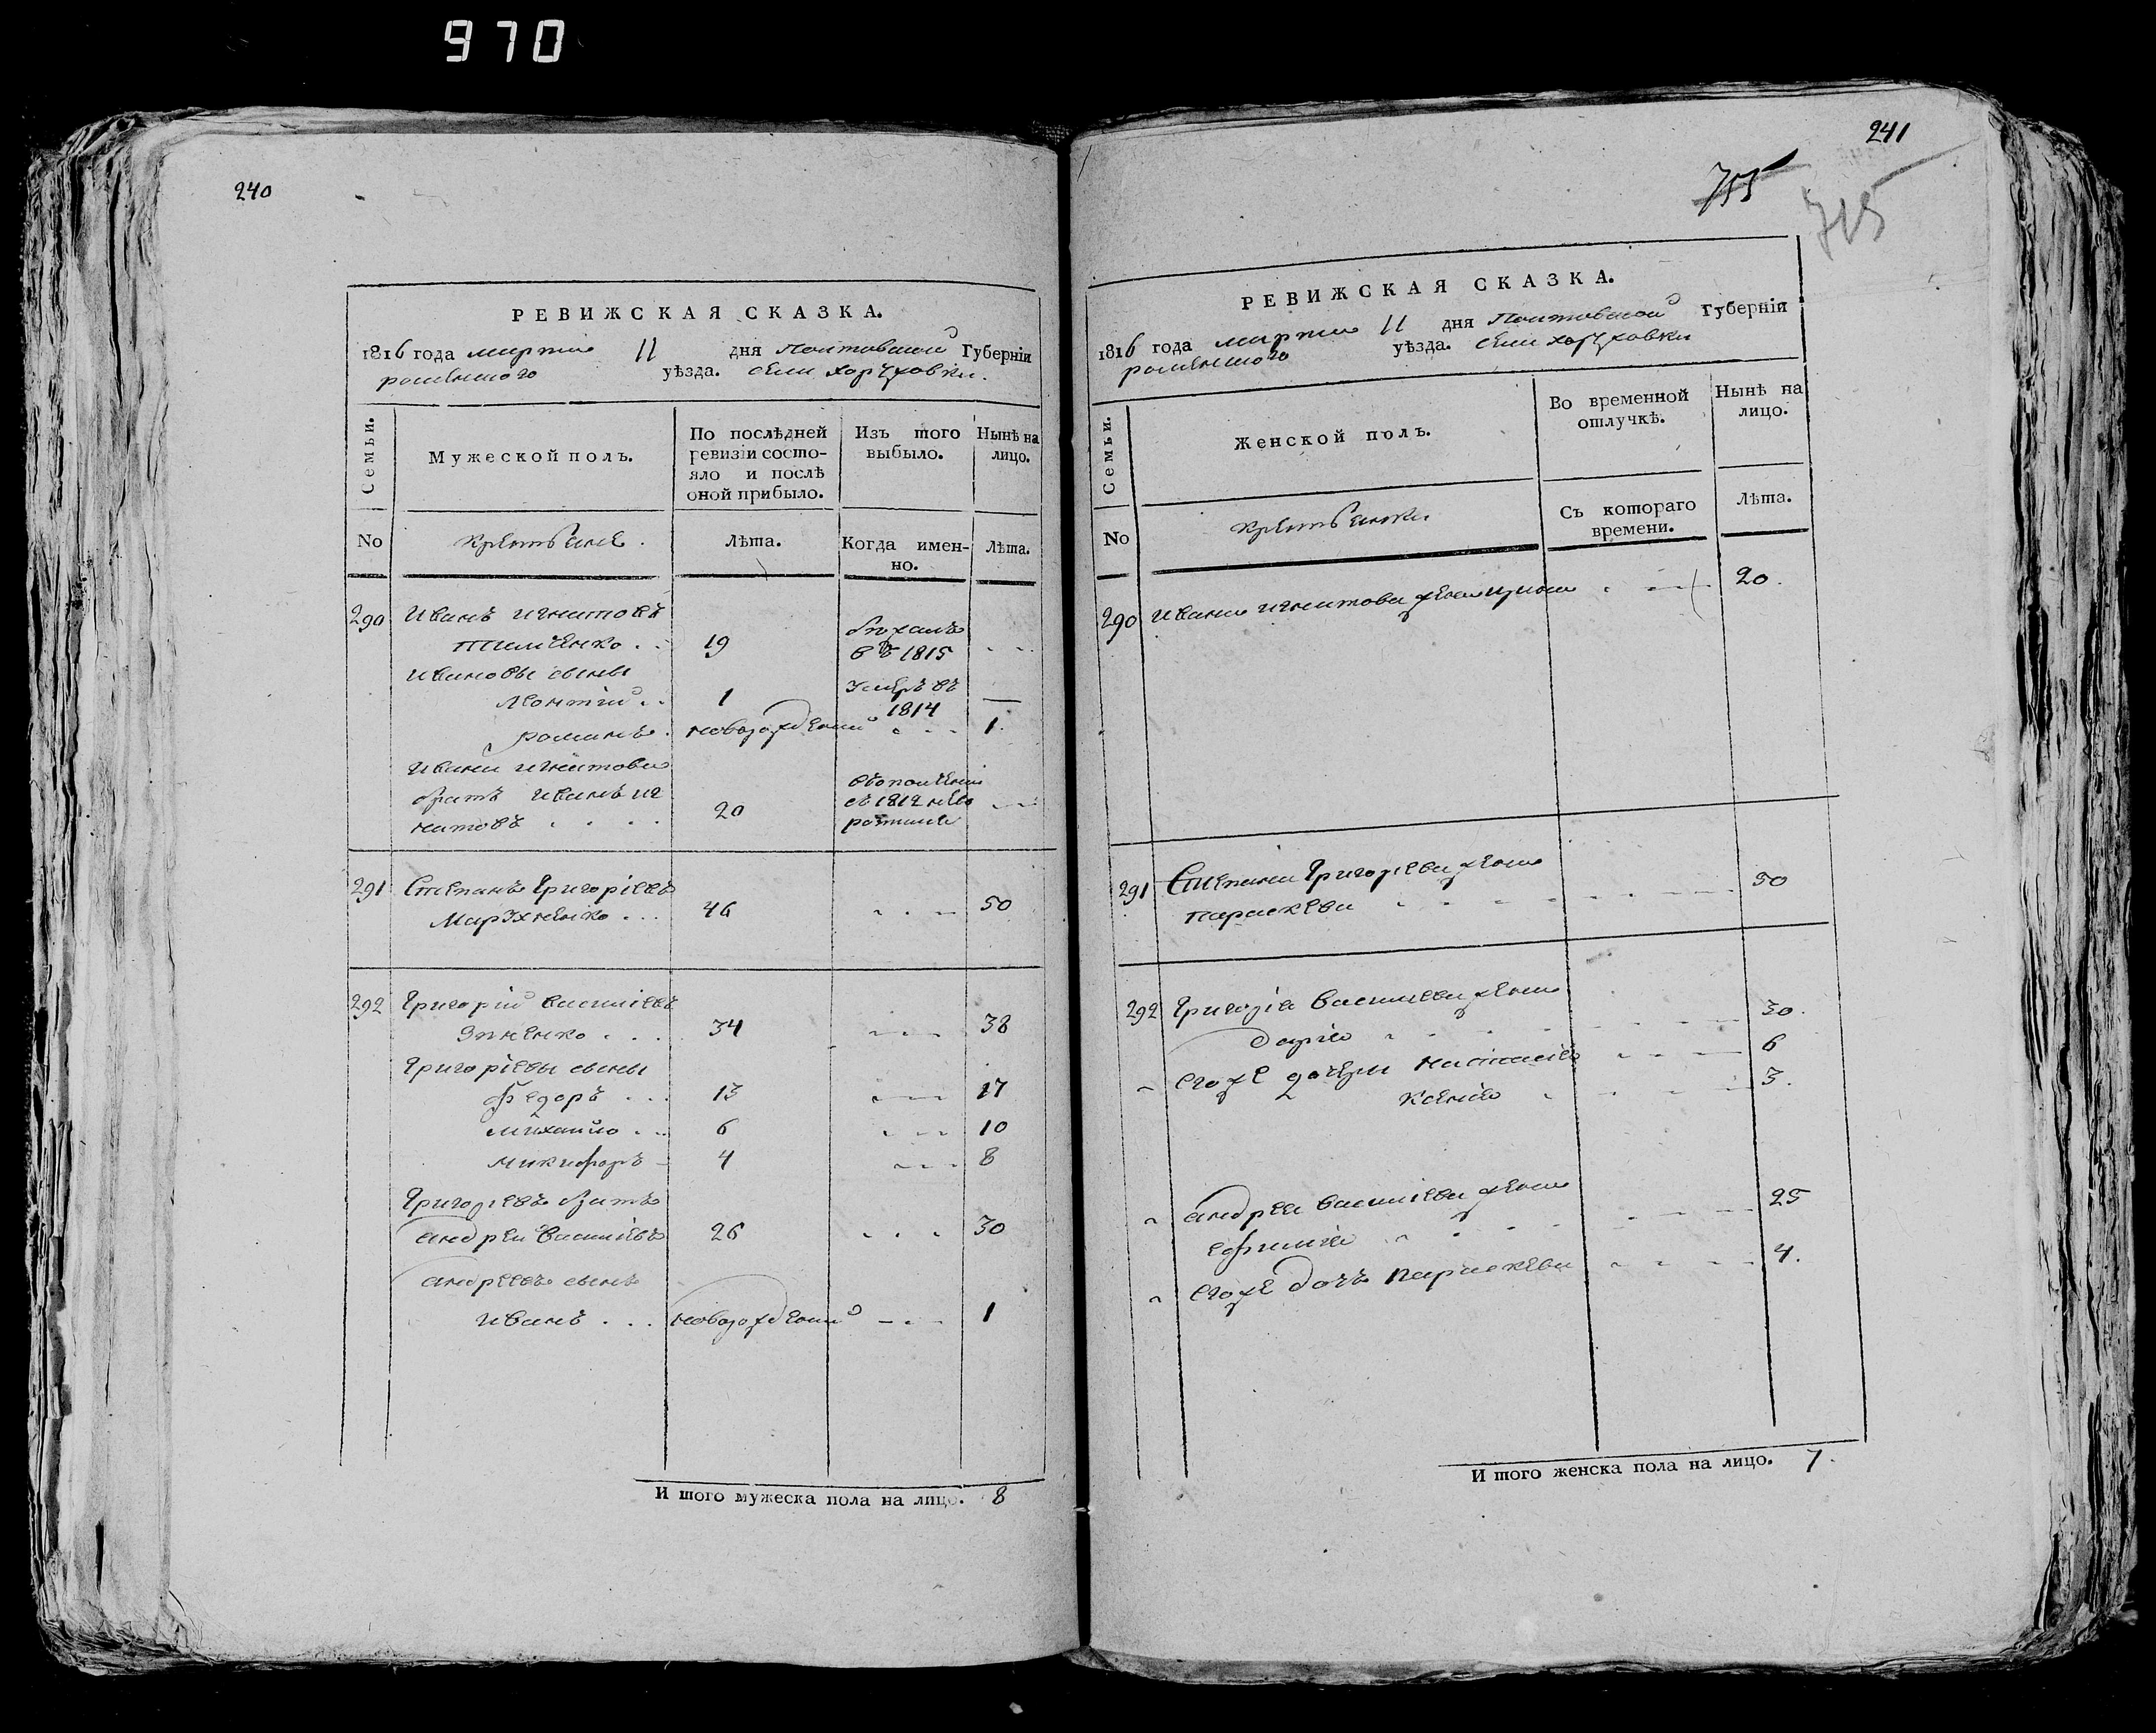 970
240
РЕВИЖСКАЯ СКАЗКА.
1816 года марта 11 дня Полтавской Губерніи
роменского уѣзда. села хоружовки.
Семьи.
Мужеской полъ.
По послѣдней ревизіи состояло и послѣ оной прибыло.
Изъ того выбыло.
Нынѣ на лицо.
No
крестьяне.
Лѣта.
Когда именно.
Лѣта.
290 Иванъ игнатовъ
19
въ 1815
Ивановы сыны
Леонтій 1 умеръ въ 1814 —
романъ новорожденый 1.
Ивана игнатова
братъ иванъ иг
натовъ 20
въ 1812 м
291 Степанъ Григорьевъ
46 50
292 Григорій василіевъ
34 38
Григоріевы сыны
федоръ 13 17
михайло 6 10
микифоръ 4 8
Григоріевъ братъ
андрей василіевъ 26 30
андреевъ сынъ
иванъ новорожденый 1
И того мужеска пола на лицо. 8
241
755
715
РЕВИЖСКАЯ СКАЗКА.
1816 года марта 11 дня Полтавской Губерніи
роменского уѣзда. села хоружовки
Семьи.
Женской полъ.
Во временной отлучкѣ.
Нынѣ на лицо.
No
крестьянки
Съ котораго времени.
Лѣта.
290 Ивана игнатова жена 20.
291 Степана Григорьева жена
параскева 50
292 Григорія василіева жена
дарія 30.
егоже дочери настасія 6
ксенія 3.
андрея василіева жена
ефимія 25
егоже дочь параскева 4.
И того женска пола на лицо. 7.